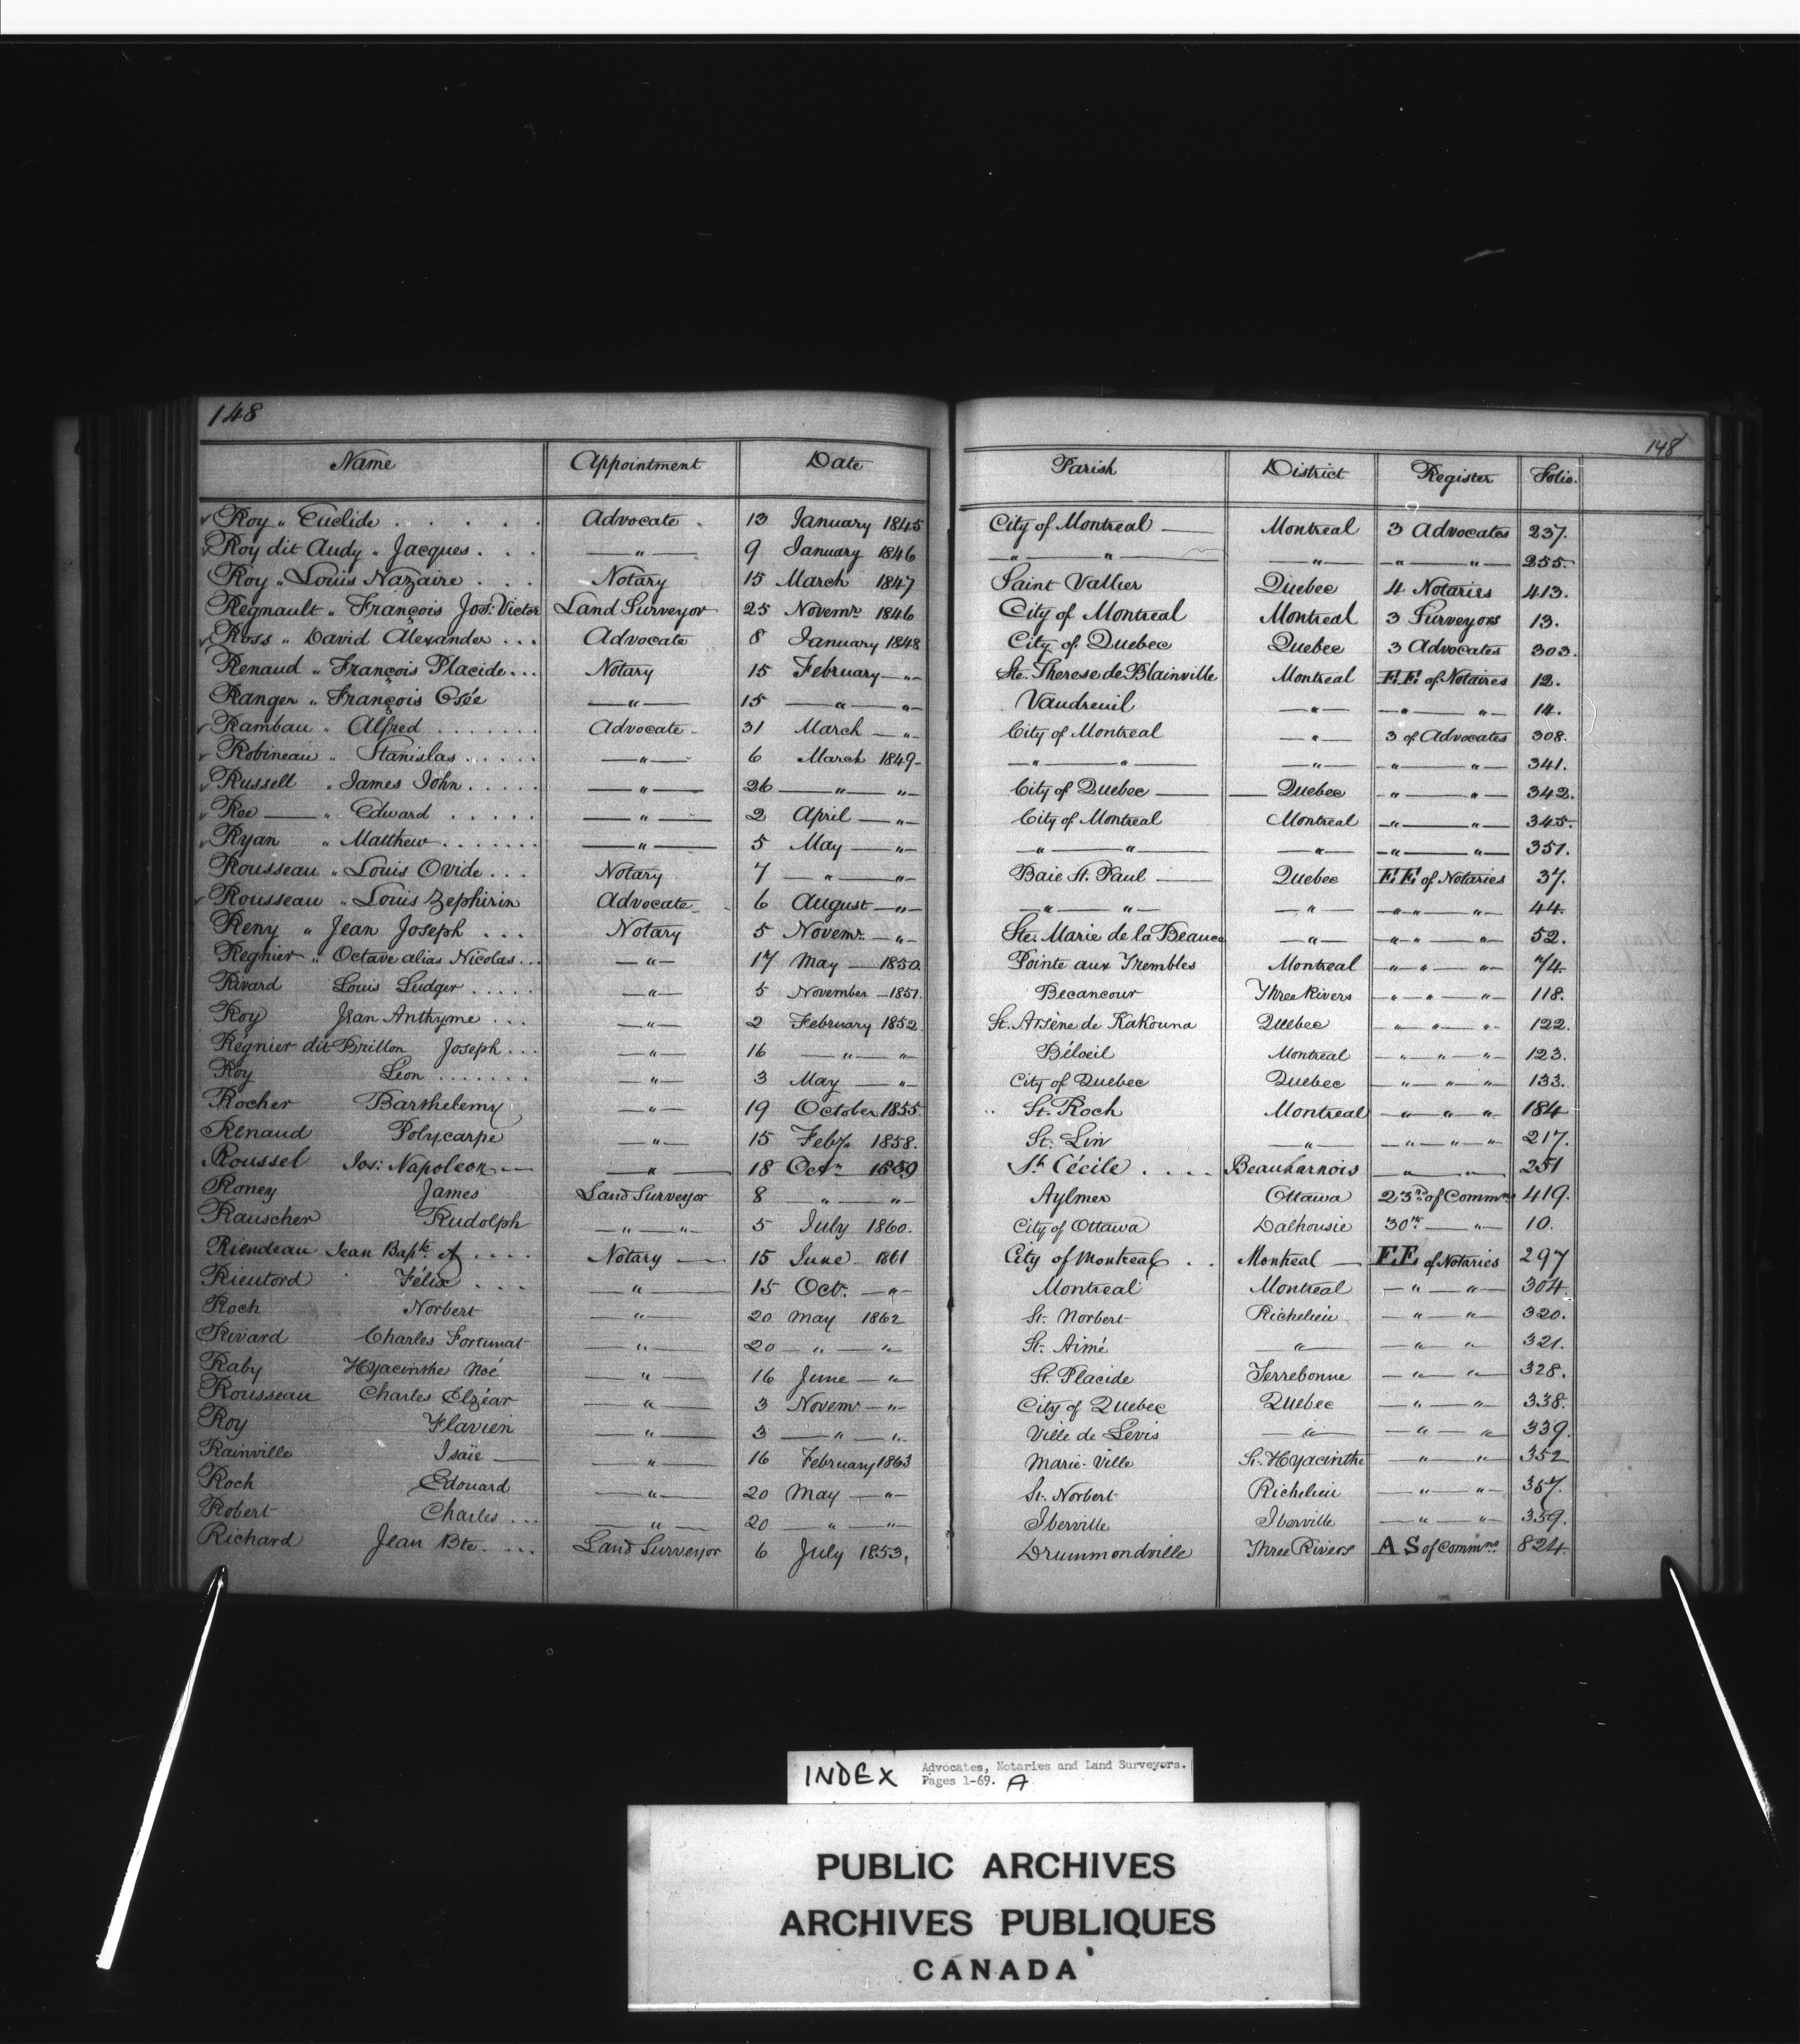 148
148
Name Appointment Date Parish District Register Folio.
Roy „ Euclide . . . . . . Advocate . 13 January 1845 City of Montreal — Montreal 3 Advocates 237.
Roy dit Audy „ Jacques . . . —„— 9 January 1846 —„—„— —„— —„—„— 255.
Roy „ Louis Nazaire . . . Notary 15 March 1847 Saint Vallier Quebec 4 Notaries 413.
Regnault „ François Jos: Victor Land Surveyor 25 Novemr. 1846 City of Montreal Montreal 3 Surveyors 13.
Ross „ David Alexander . . . Advocate 8 January 1848 City of Quebec Quebec 3 Advocates 303.
Renaud „ François Placide . . . Notary 15 February —„— Ste. Therese de Blainville Montreal E.E. of Notaires 12.
Ranger „ François Osée —„— 15 —„— —„— Vaudreuil —„— —„—„— 14.
Rambau „ Alfred . . . . . . . Advocate - 31 March —„— City of Montreal —„— 3 of Advocates 308.
Robineau „ Stanislas . . . . . —„— 6 March 1849 - —„—„— —„— —„—„— 341.
Russell „ James John . . . . . —„— 26 —„— —„— City of Quebec — — Quebec —„—„— 342.
Roe — „ Edward . . . . . —„— 2 April —„— City of Montreal Montreal —„—„— 345.
Ryan „ Matthew . . . . . . . —„— 5 May —„— —„—„— —„— —„—„— 351.
Rousseau „ Louis Ovide . . . Notary 7 —„— —„— Baie St. Paul — Quebec E.E. of Notaries 37.
Rousseau „ Louis Zephirin Advocate - 6 August —„— —„—„— —„— —„—„— 44.
Reny „ Jean Joseph . . . Notary 5 Novemr. —„— Ste. Marie de la Beauce —„— —„—„— 52.
Regnier „ Octave alias Nicolas . . . —„— 17 May — 1850. Pointe aux Trembles Montreal —„—„—„— 74.
Rivard Louis Ludger . . . . . —„— 5 November — 1851. Becancour Three Rivers —„—„—„— 118.
Roy Jean Anthyme . . . —„— 2 February 1852. St. Arsène de Kakouna Quebec „—„—„— 122.
Régnier dit Brillon Joseph . . . —„— 16 —„—„— Béloeil Montreal —„—„—„— 123.
Roy Léon . . . . . . . —„— 3 May —„— City of Quebec Quebec —„—„—„— 133.
Rocher Barthelemy —„— 19 October 1855. St. Roch Montreal —„—„—„— 184
Renaud Polycarpe —„— 15 Feby. 1858. St: Lin —„— —„—„—„— 217.
Roussel Jos: Napoleon — —„— 18 Octr. 1859 St. Cécile . . . . Beauharnois —„—„— 251
Roney James Land Surveyor 8 —„— —„— Aylmer Ottawa 23rd. of Commns 419.
Rauscher Rudolph —„—„— 5 July 1860. City of Ottawa Dalhousie 30th. —„— 10.
Riendeau Jean Bapte. A . . . . Notary — 15 June 1861 City of Montreal . . Montreal — E E of Notaries 297
Rieutord Félix . . . —„— 15 Oct. —„— Montreal Montreal —„—„— 304.
Roch Norbert —„— 20 May 1862 St. Norbert Richelieu —„—„— 320.
Rivard Charles Fortunat —„— 20 —„— „— St. Aimé —„— —„—„— 321.
Raby Hyacinthe Noé —„— 16 June —„— St. Placide Terrebonne —„—„— 328.
Rousseau Charles Elzéar —„— 3 Novemr —„— City of Quebec Quebec —„—„— 338.
Roy Flavien —„— 3 —„— „— Ville de Levis —„— —„—„— 339.
Rainville Isaïe — —„— 16 February 1863 Marie-Ville St. Hyacinthe —„—„— 352
Roch Edouard —„— 20 May —„— St. Norbert Richelieu —„—„— 357.
Robert Charles . . . —„— 20 —„— „— Iberville Iberville —„—„— 359.
Richard Jean Bte. . . . Land Surveyor 6 July 1853, Drummondville Three Rivers A S of Commns. 824.
INDEX Advocates, Notaries and Land Surveyors.
Pages 1-69. A
PUBLIC ARCHIVES
ARCHIVES PUBLIQUES
CANADA